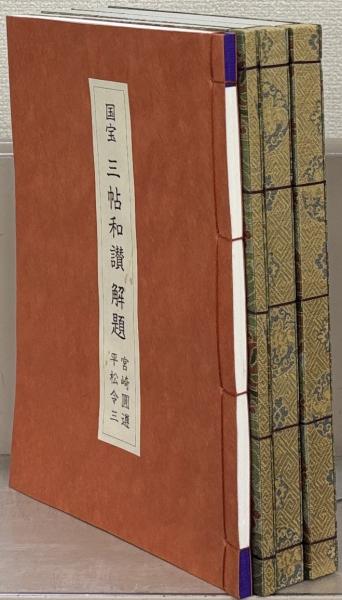 国宝 三帖和讃 解題
宮崎圓遵
平松令三